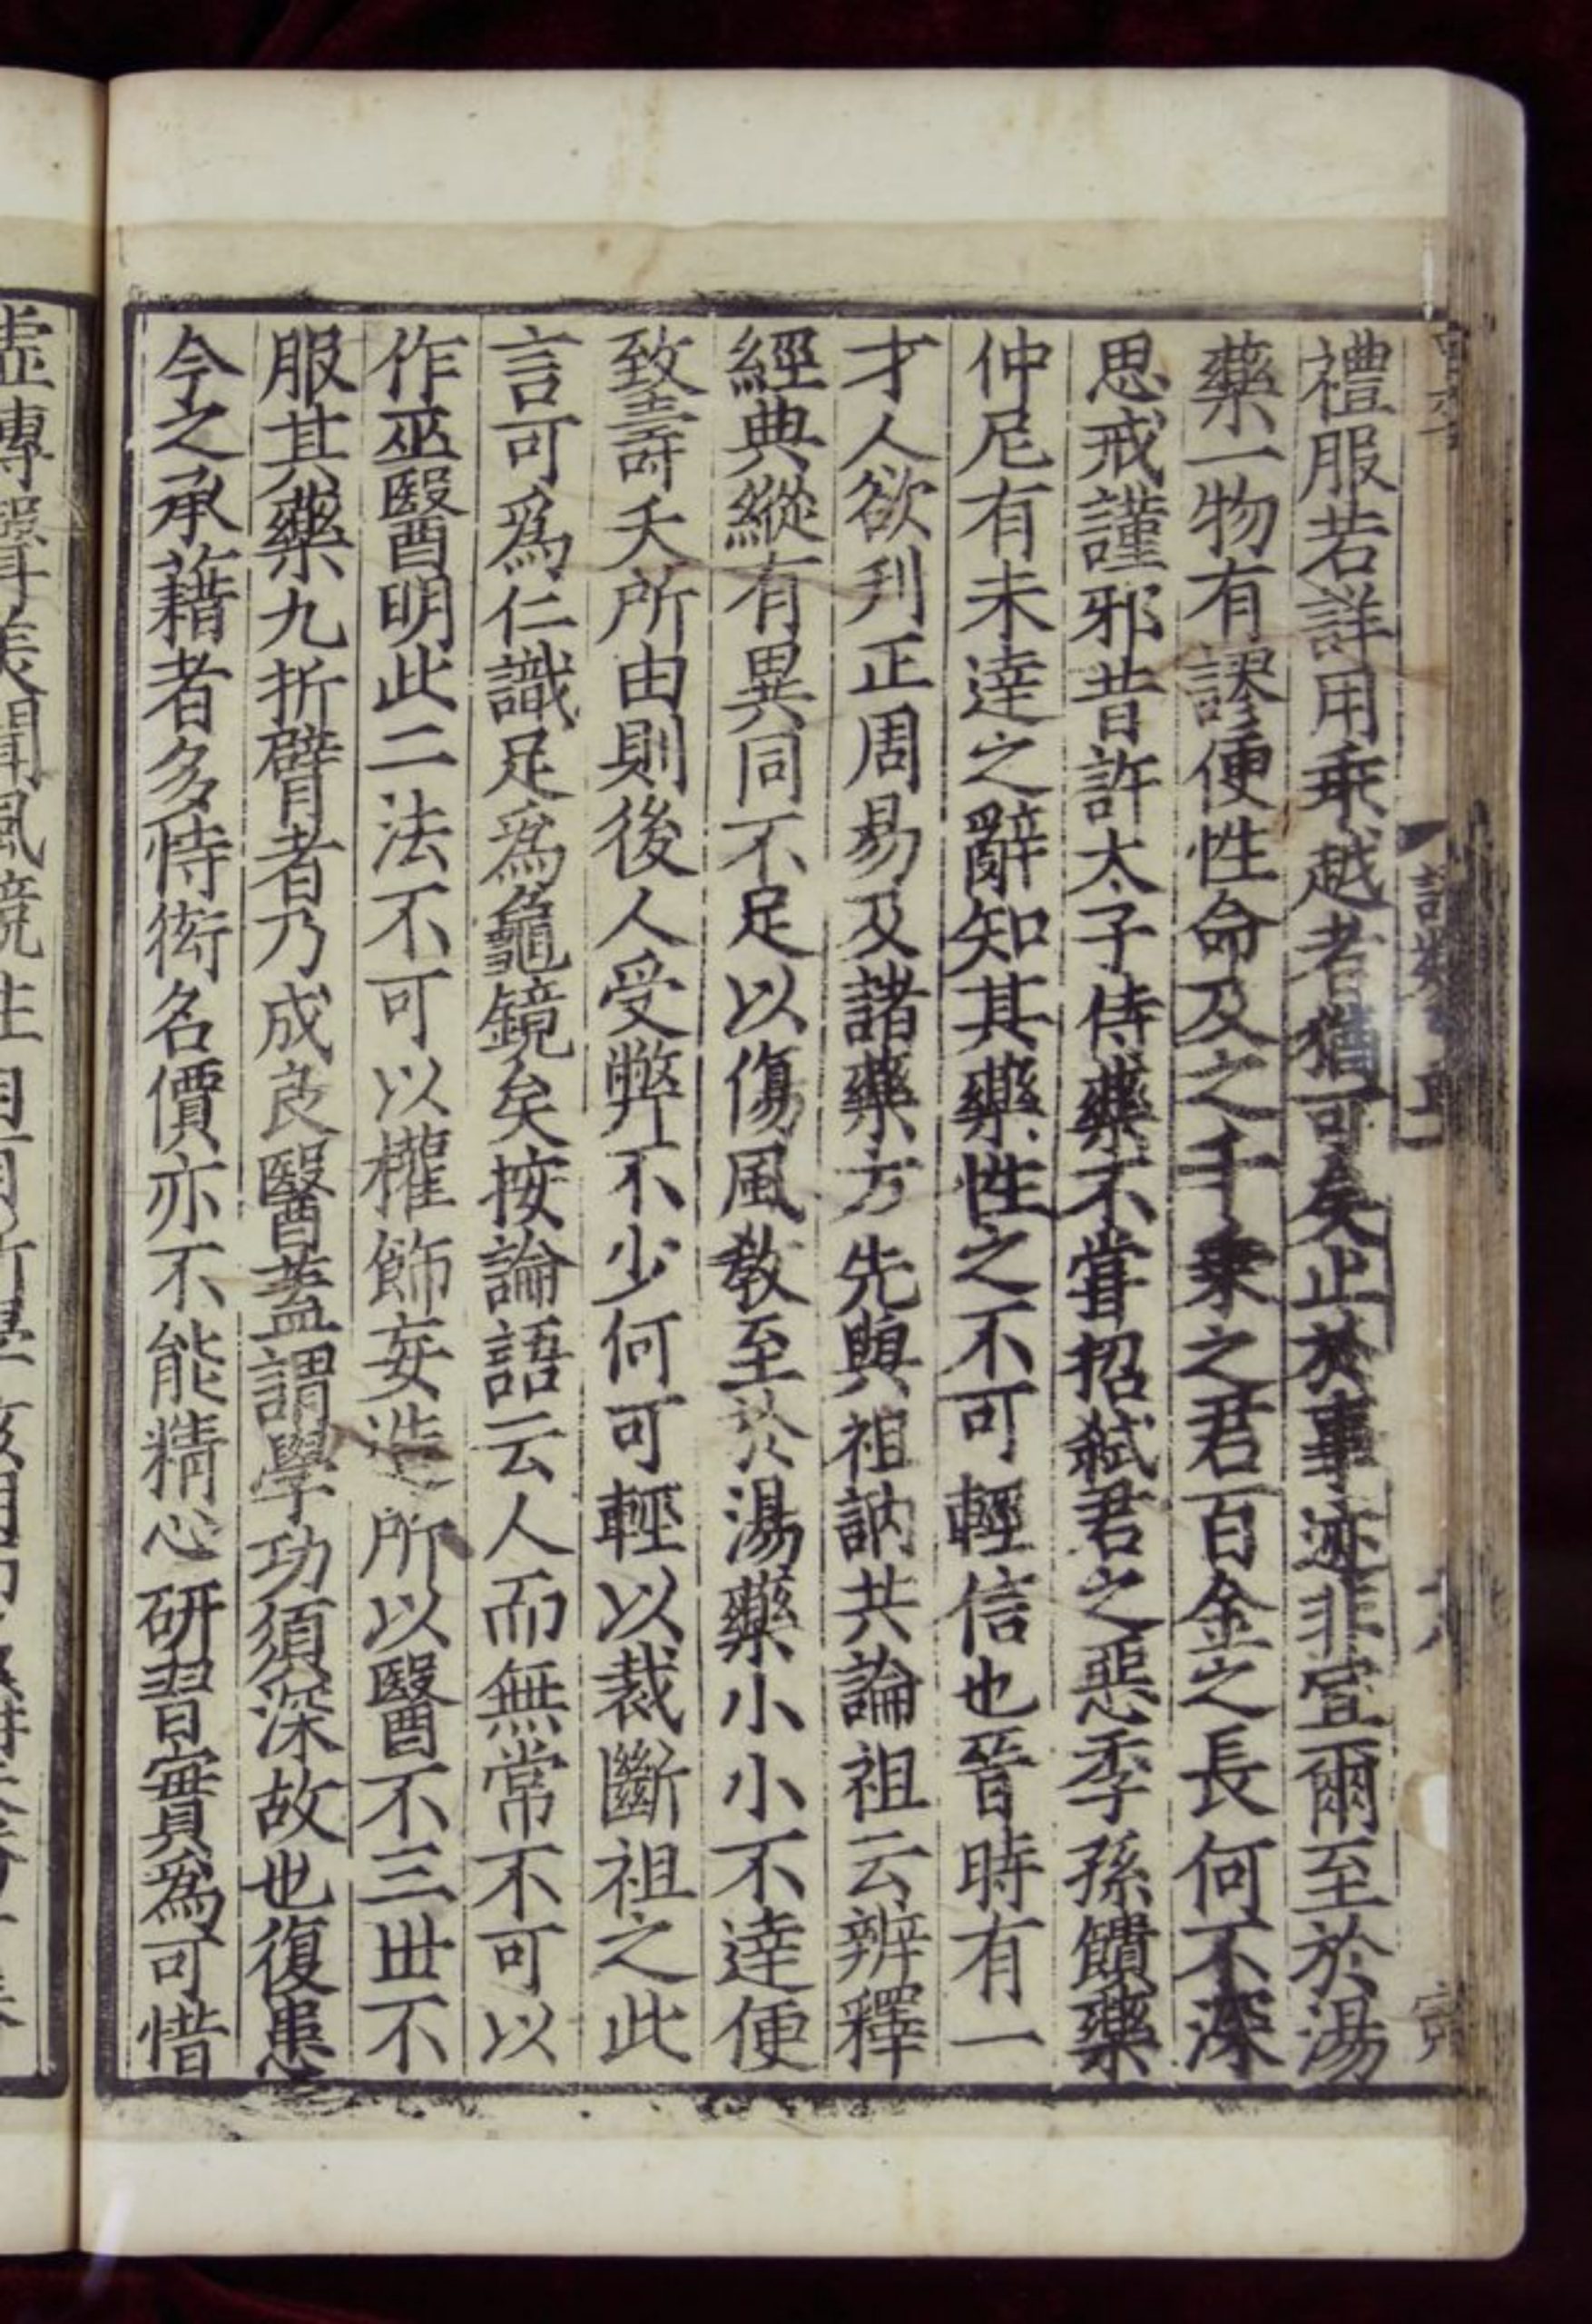 禮服若詳用乗越者猶可矣止於事迹非宜爾至於湯
藥一物有謬便性命及之千乗之君百金之長何不深
思戒謹邪昔許太子侍藥不甞招弑君之惡季孫饋藥
仲尼有未達之辭知其藥性之不可輕信也晉時有一
才人欲刋正周易及諸藥方先與祖訥共論祖云辨釋
經典縱有異同不足以傷風教至於湯藥小小不達便
致壽夭所由則後人受弊不少何可輕以裁斷祖之此
言可爲仁識足爲龜鏡矣按論語云人而無常不可以
作巫醫明此二法不可以權飾妄造所以醫不三世不
服其藥九折臂者乃成良醫蓋謂學功須深故也復患
今之承藉者多恃衒名價亦不能精心研習實爲可惜